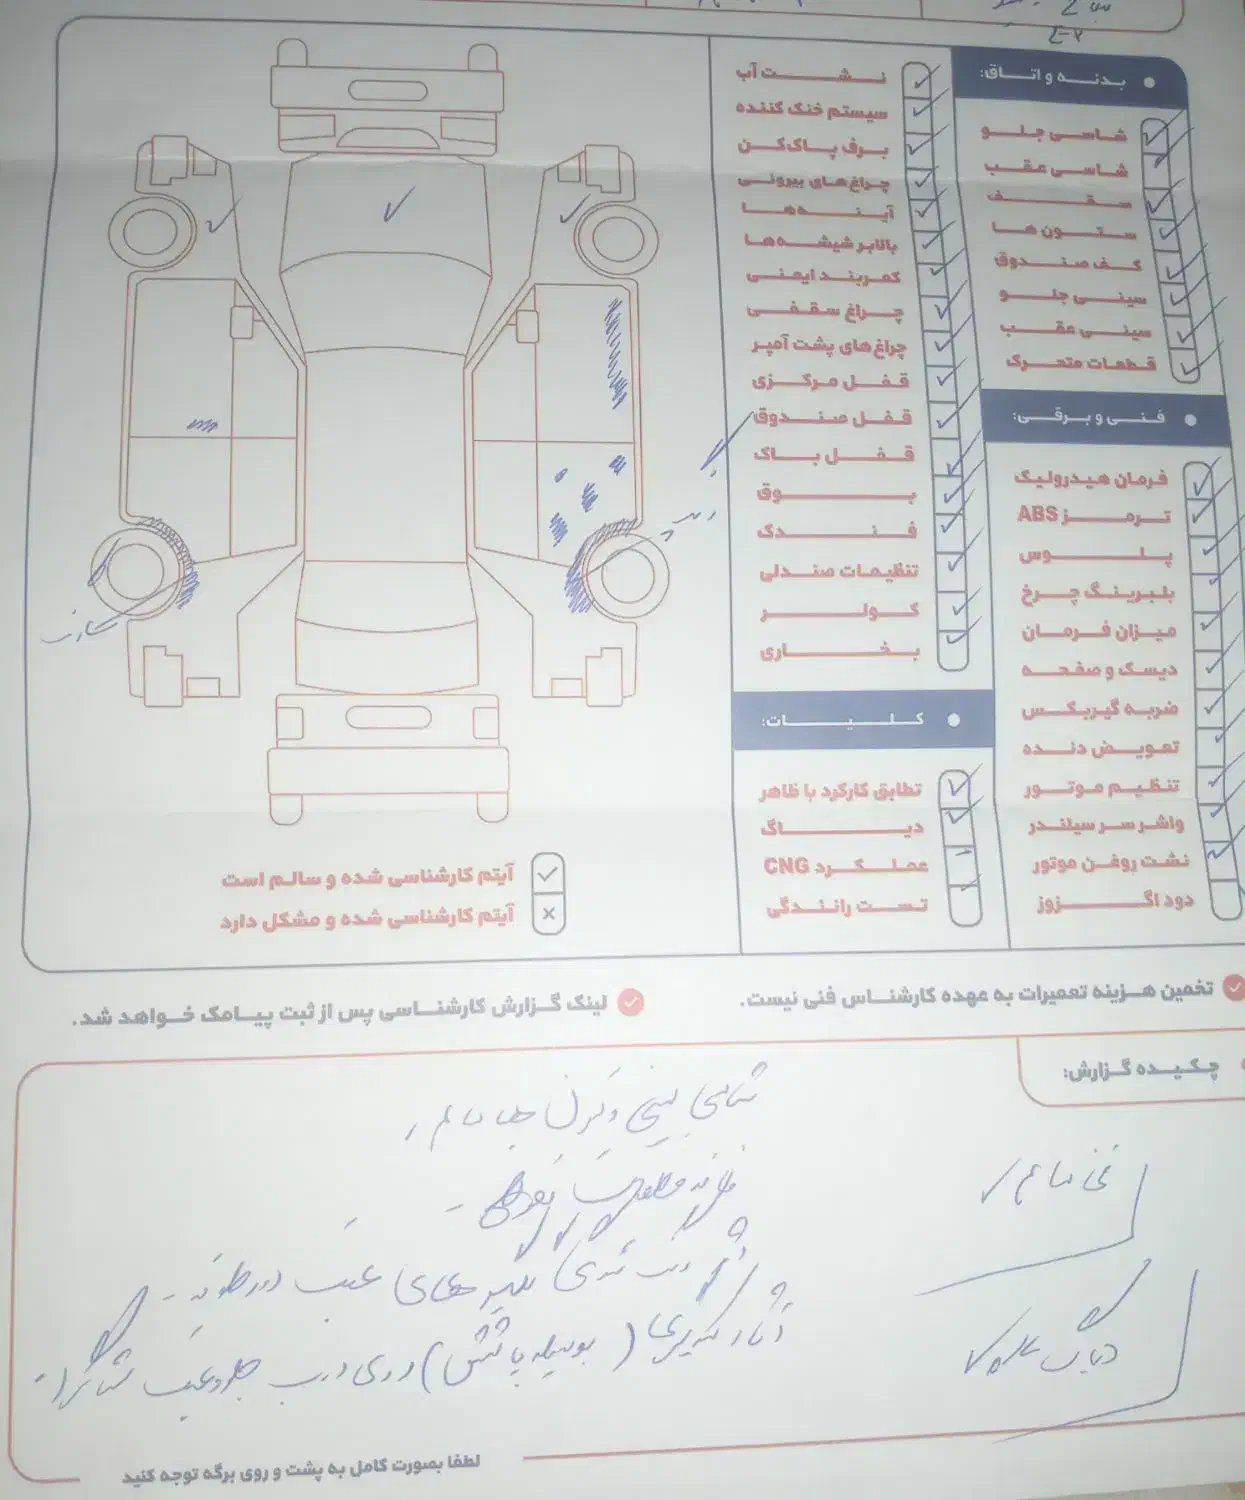 بدنه و اتاق:
شاسی جلو
شاسی عقب
سقف
ستون ها
کف صندوق
سینی جلو
سینی عقب
قطعات متحرک
فنی و برقی:
فرمان هیدرولیک
ترمز ABS
پلوس
بلبرینگ چرخ
میزان فرمان
دیسک و صفحه
ضربه گیربکس
تعویض دنده
تنظیم موتور
واشر سر سیلندر
نشت روغن موتور
دود اگزوز
نشت آب
سیستم خنک کننده
برف پاک‌کن
چراغ‌های بیرونی
آینه‌ها
بالابر شیشه‌ها
کمربند ایمنی
چراغ سقفی
چراغ‌های پشت آمپر
قفل مرکزی
قفل صندوق
قفل باک
بوق
فندک
تنظیمات صندلی
کولر
بخاری
کلیات:
تطابق کارکرد با ظاهر
دیاگ
عملکرد CNG
تست رانندگی
آیتم کارشناسی شده و سالم است
آیتم کارشناسی شده و مشکل دارد
تخمین هزینه تعمیرات به عهده کارشناس فنی نیست.
لینک گزارش کارشناسی پس از ثبت پیامک خواهد شد.
چکیده گزارش:
فنی سالم
دیاگ سالم
شاسی سینی و
گلگیر های عقب
آثار (بوسیله پالش) روی درب جلو و عقب
لطفا بصورت کامل به پشت و روی برگه توجه کنید